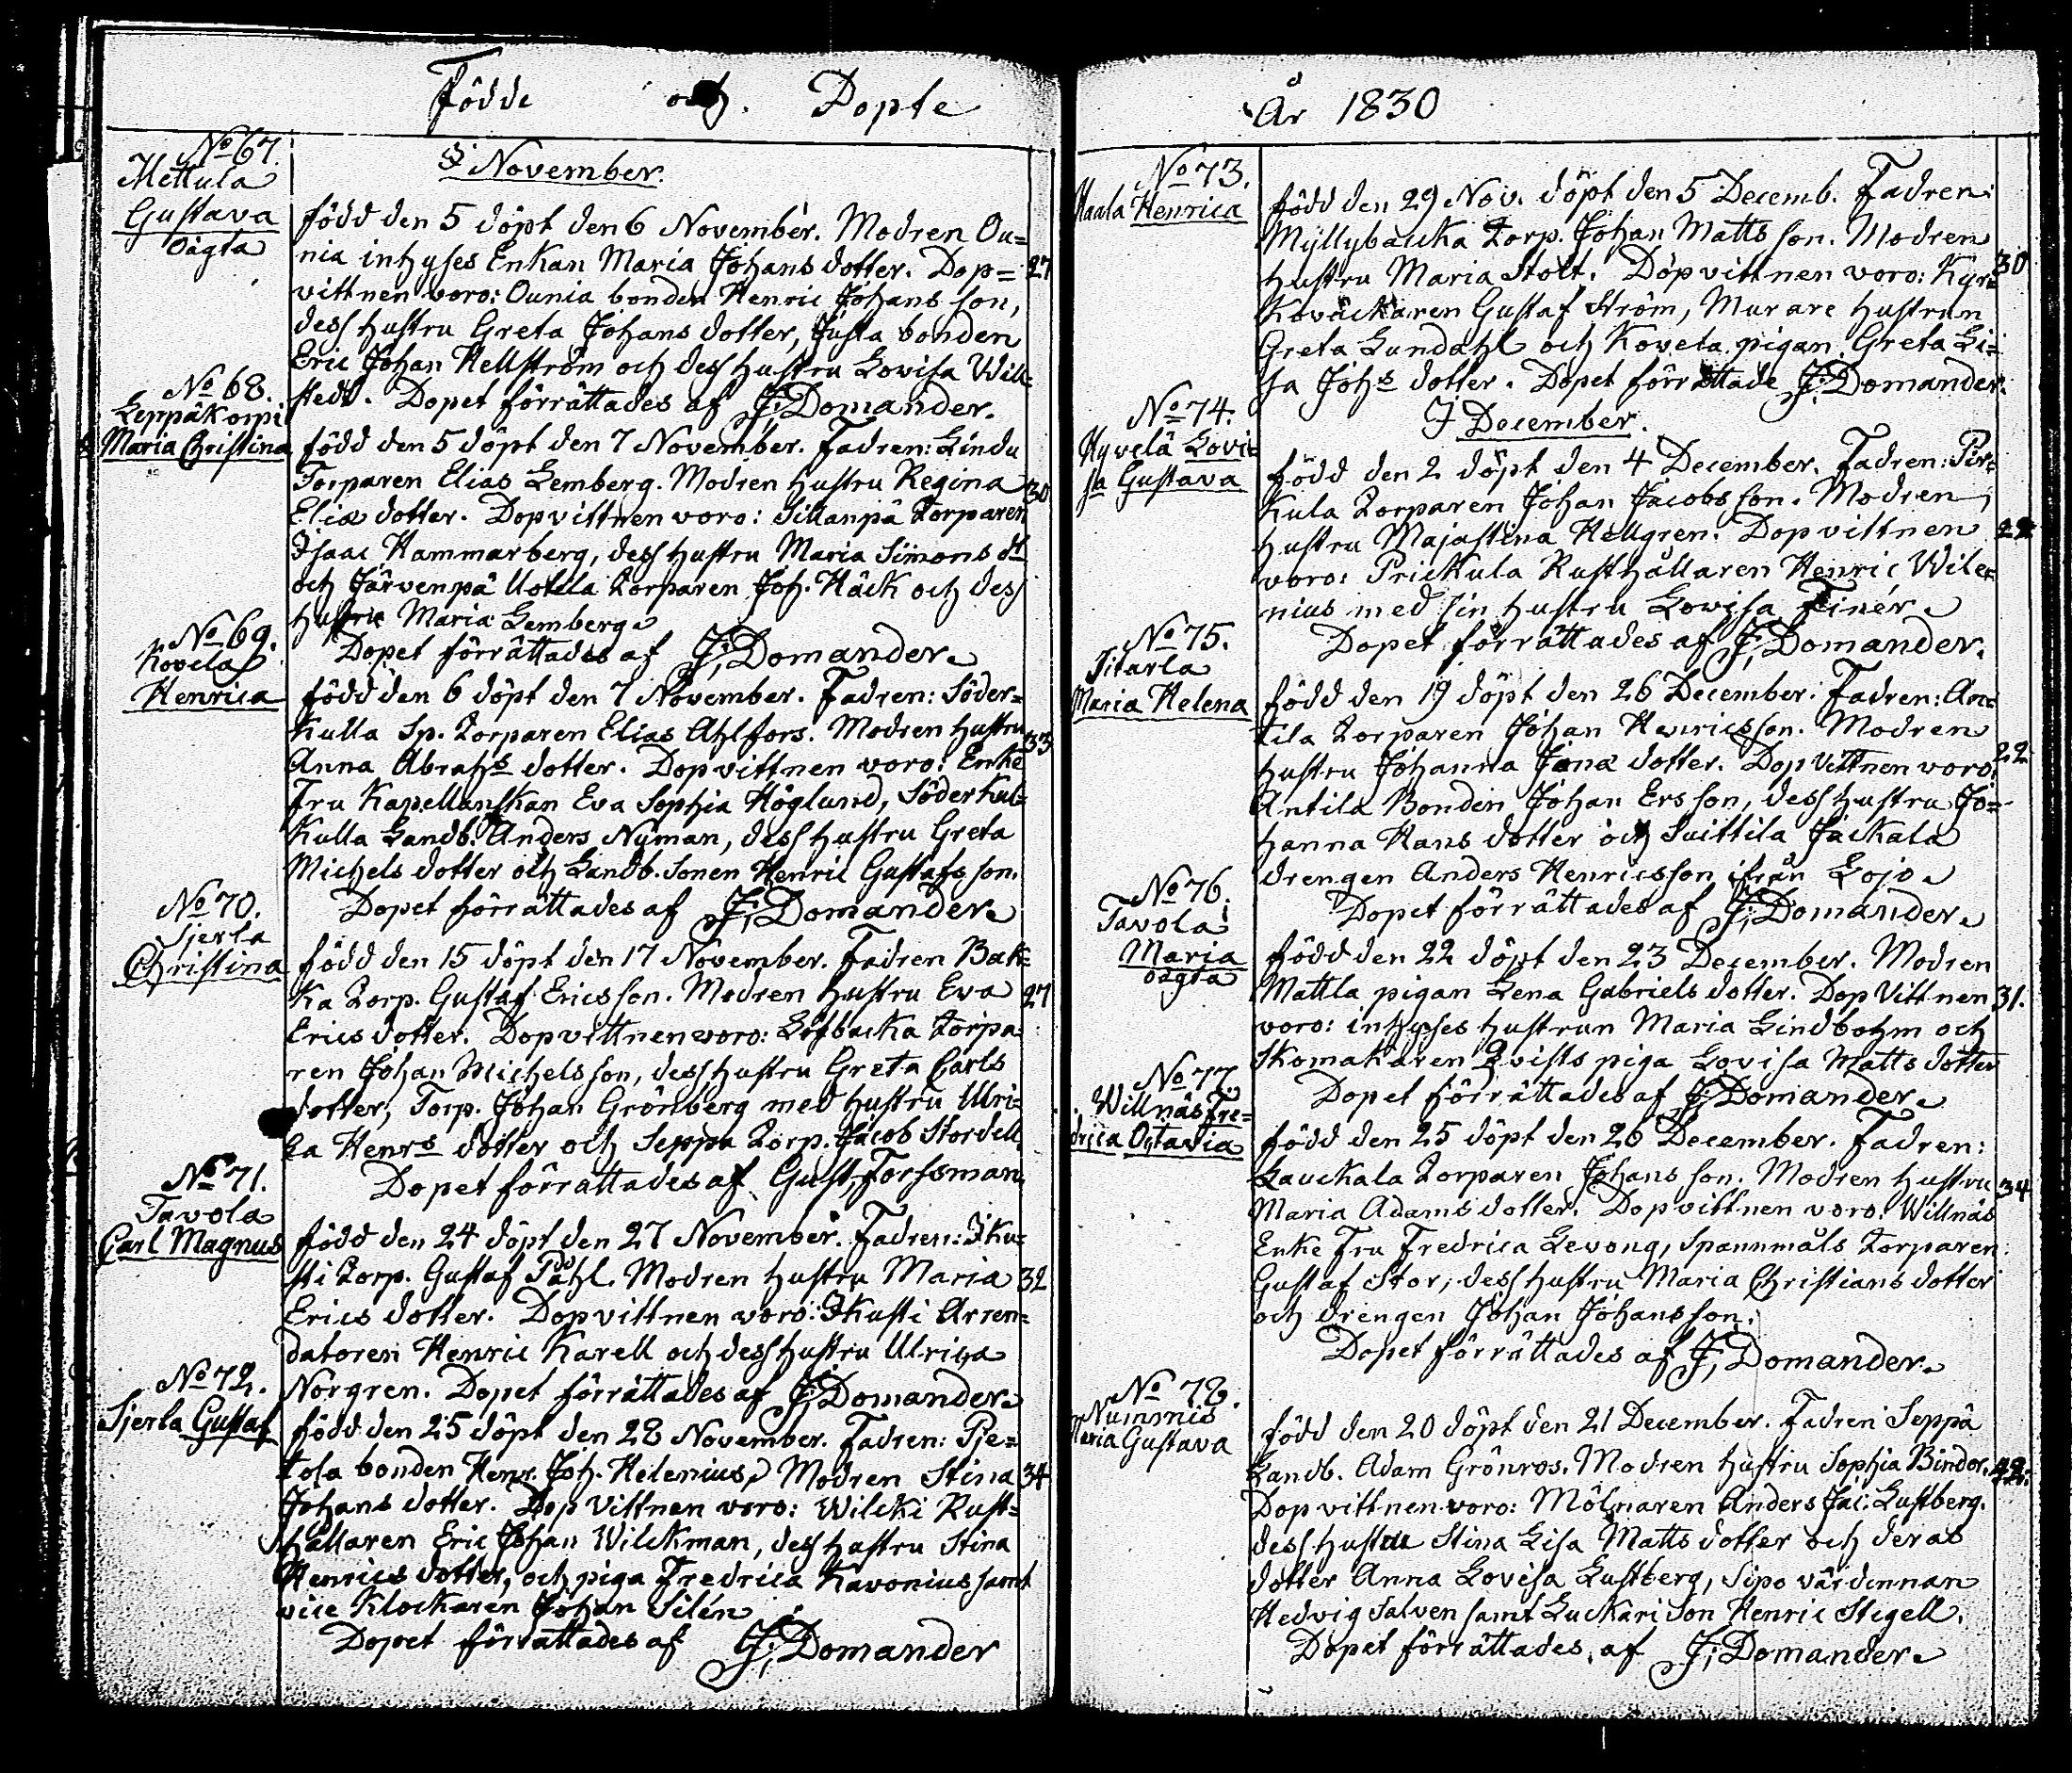 Födde och Dopte
No 67.
Mettula
Gustava
oägta
I November.
född den 5 döpt den 6 November. Modren Ou=
nia inhyses Enkan Maria Johans dotter. Dop= 27
vittnen voro: Ounia bonden Henric Johans son,
dess hustru Greta Johans dotter, Justa bonden
Eric Johan Hellström och dess hustru Lovisa Will=
stedt. Dopet förrättades af J. Domander.
No 68.
Leppäkorpi
Maria Christina
född den 5 döpt den 7 November. Fadren: Lindu
Torparen Elias Lemberg. Modren hustru Regina 30
Elias dotter. Dopvittnen voro: Sillanpä Torparen
Isaac Hammarberg, dess hustru Maria Simons dr
och Järvenpä Uotila Torparen Joh. Häck och dess
hustru Maria Lemberg
Dopet förrättades af J. Domander.
No 69.
Kovela
Henrica
född den 6 döpt den 7 November. Fadren: Söder=
kulla Sp. Torparen Elias Ahlfors. Modren hustru 33
Anna Abrahs dotter. Dopvittnen voro: Enke
Fru Kapellanskan Eva Sophia Höglund, Söderkul=
kulla Landb. Anders Nyman, dess hustru Greta
Michels dotter och Landb. Sonen Henric Gustafs son.
Dopet förrättades af J. Domander.
No 70.
Sjerla
Christina
född den 15 döpt den 17 November. Fadren Bak=
ka Torp. Gustaf Ericsson. Modren hustru Eva 27
Erics dotter. Dopvittnen voro: Löfbacka Torpa=
ren Johan Michelsson, dess hustru Greta Carls
dotter, Torp. Johan Grönberg med hustru Ulri=
ca Henrs dotter och Seppä Torp. Jacob Stordell
Dopet förrättades af Gust. Forssman
No 71.
Tavola
Carl Magnus
född den 24 döpt den 27 November. Fadren: Iku=
sti Torp. Gustaf Påhl. Modren hustru Maria 32
Erics dotter. Dopvittnen voro: Ikusti Arren=
datoren Henric Karell och dess hustru Ulrica
Norgren. Dopet förrättades af J. Domander.
No 72.
Sjerla Gustaf
född den 25 döpt den 28 November. Fadren: Pje=
tola bonden Henr. Joh. Helenius, Modren Stina 34
Johans dotter. Dop vittnen voro: Wilcki Rust=
hållaren Eric Johan Wilckman, dess hustru Stina
Henrics dotter, och piga Fredrica Kavonius samt
vice Klockaren Johan Silén
Dopet förrättades af J. Domander
År 1830
No 73.
Haala Henrica
född den 29 Nov. döpt den 5 Decemb. Fadren:
Myllybacka Torp. Johan Matts son. Modren
hustru Maria Stolt. Döpvittnen voro: Kyr= 30
koväcktaren Gustaf Ström, Murare hustrun
Greta Lundahl och Koveta pigan Greta Li=
sa Johs dotter. Dopet förrättade J. Domander.
I December.
No 74.
Hyvelä Lovi=
sa Gustava
född den 2 döpt den 4 December. Fadren: Pir=
kula Torparen Johan Jacobs son. Modren
hustru Majastina Hellgren. Dopvittnen
voro: Prickula Rusthållaren Henric Wile=
nius med sin hustru Lovisa Finér.
Dopet förrättades af J. Domander.
No 75.
Jitarla
Maria Helena
född den 19 döpt den 26 December. Fadren: An=
tila Torparen Johan Henricsson. Modren
hustru Johanna Jona dotter. Dop vittnen voro: 22
Antila Bonden Johan Ersson, dess hustru Jo=
hanna Hans dotter och Suittila Jackala
drengen Anders Henricsson ifrån Lojo.
Dopet förrättades af J. Domander.
No 76.
Tavola
Maria
oägta
född den 22 döpt den 23 December. Modren
Mattla pigan Lena Gabriels dotter. Dop Vittnen 31.
voro: inhyses hustrun Maria Lindbohm och
Skomakaren Qvists piga Lovisa Matts dotter
Dopet förrättades af J. Domander.
No 77.
Willnäs Fre=
drica Octavia
född den 25 döpt den 26 December. Fadren:
Lauckala Torparen Johans son. Modren hustru 34
Maria Adams dotter. Dopvittnen voro: Willnäs
Enke Fru Fredrica Levong, Spannmåls Torparen
Gustaf Stor, dess hustru Maria Christians dotter
och drengen Johan Johansson.
Dopet förrättades af J. Domander.
No 78.
Nummis
Maria Gustava
född den 20 döpt den 21 December. Fadren Seppä
Landb. Adam Grönroos. Modren hustru Sophia Binder.
Dopvittnen voro: Mölnaren Anders Jac. Lustberg.
dess hustru Stina Lisa Matts dotter och deras
dotter Anna Lovisa Lustberg, Sipo värdinnan
Hedvig Salven samt Luckari Son Henric Stegell.
Dopet förrättades af J. Domander.